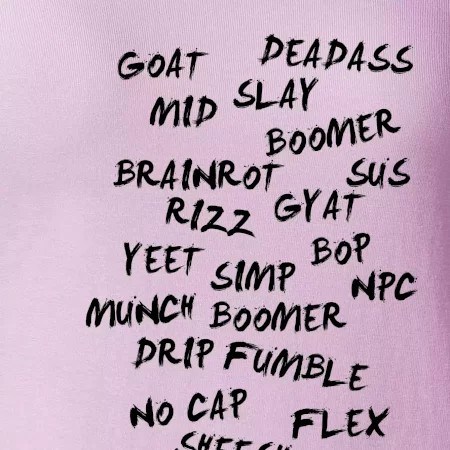 GOAT DEADASS
MID SLAY
BOOMER
BRAINROT SUS
RIZZ GYAT
YEET BOP
SIMP NPC
MUNCH BOOMER
DRIP FUMBLE
NO CAP FLEX